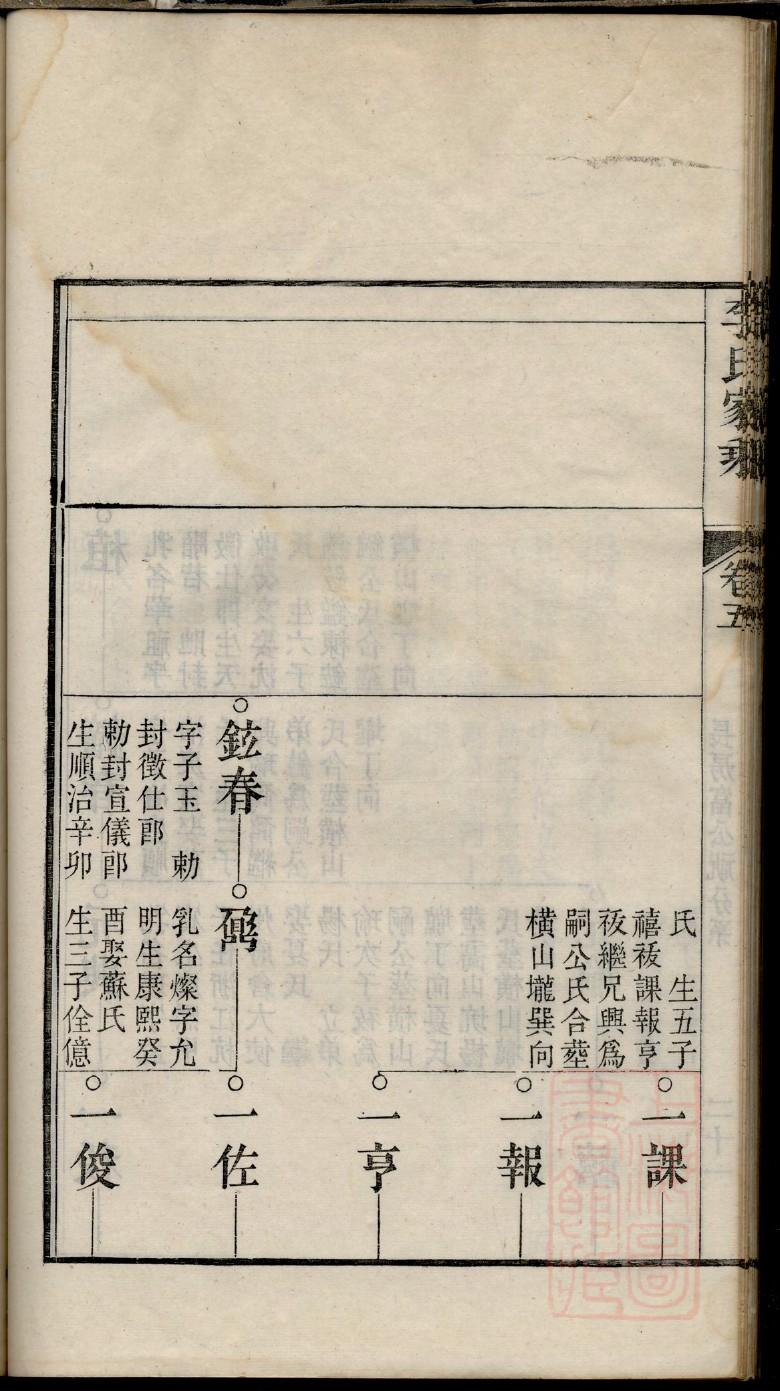 李氏家乘
卷五
氏　生五子
禧祓課報亨
祓繼兄興爲
嗣公氏合塟
橫山壠巽向
鉉春
字子玉　勅
封徵仕郎
勅封宣儀郎
生順治辛卯
乳名燦字允
明生康熙癸
酉娶蘇氏
生三子佺億
一課
一報
一亨
一佐
一俊